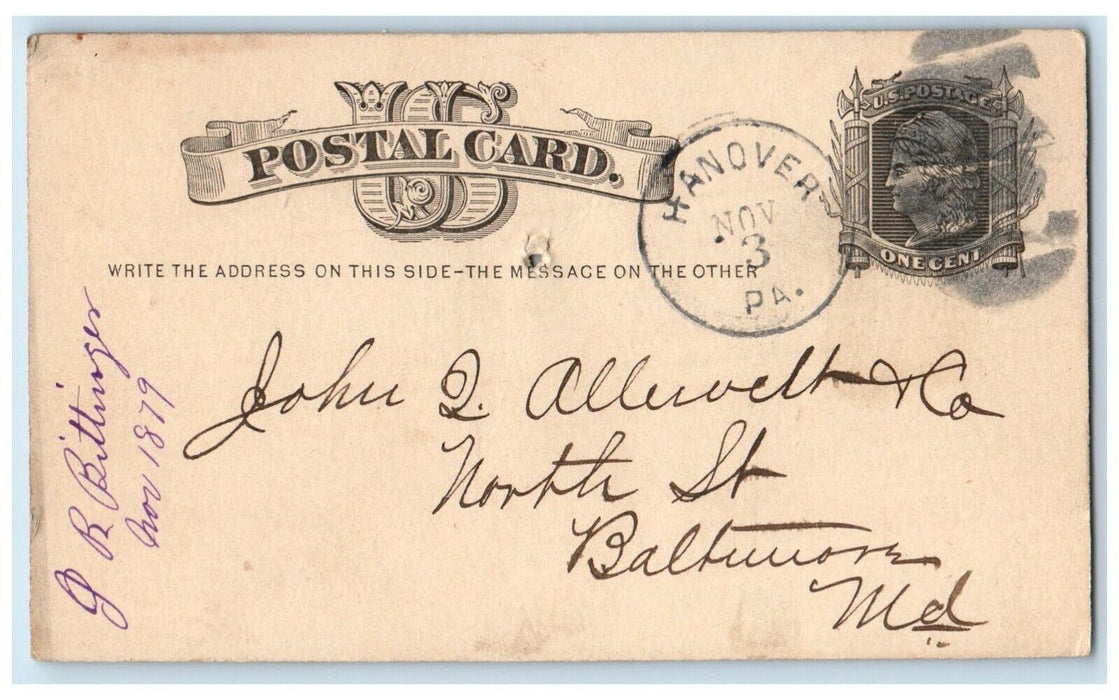 US
POSTAL CARD.
WRITE THE ADDRESS ON THIS SIDE-THE MESSAGE ON THE OTHER
HANOVER
NOV
3
PA.
U.S. POSTAGE
ONE CENT
John Q. Allewelt & Co
North St
Baltimore
Md
G R Bittinger
Nov 1879